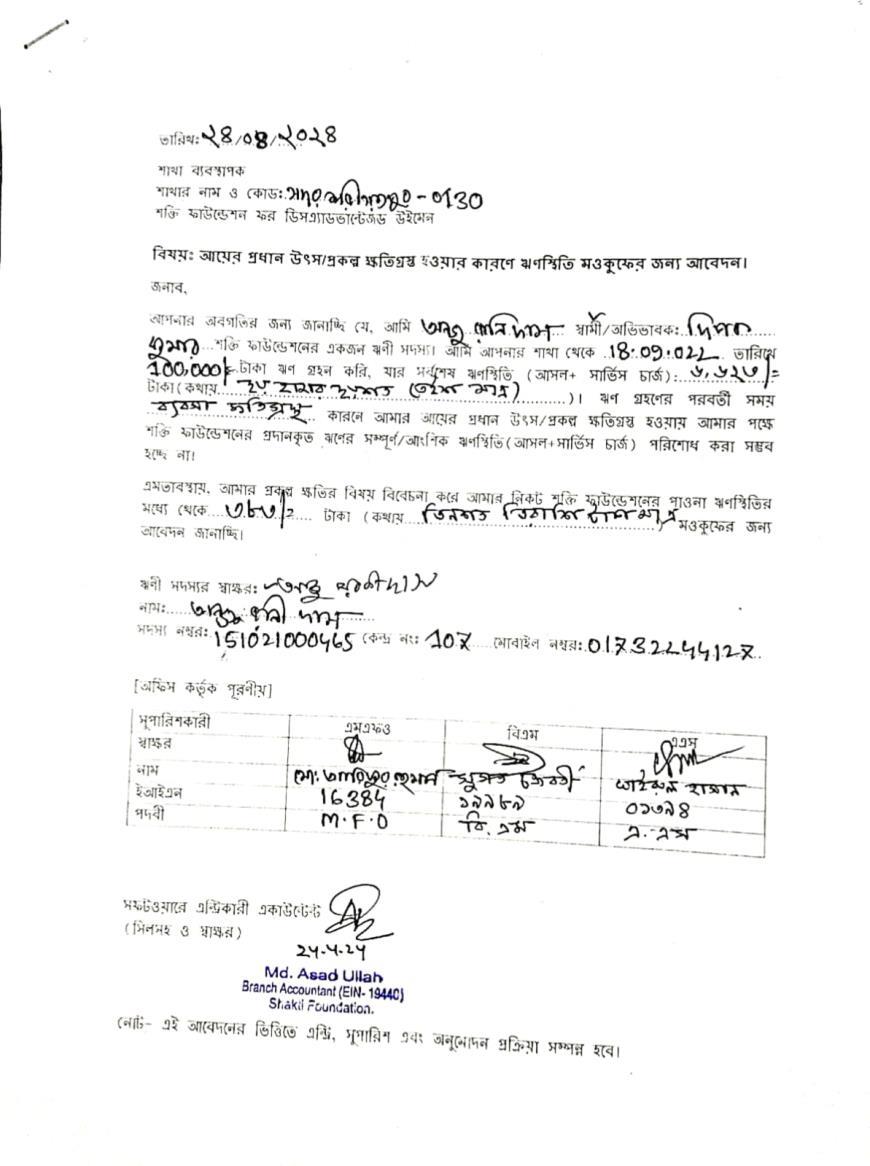 তারিখ: ২৪/০৪/২০২৪
শাখা ব্যবস্থাপক
শাখার নাম ও কোড: সদর শরীয়তপুর - 0130
শক্তি ফাউন্ডেশন ফর ডিসএ্যাডভান্টেজড উইমেন
বিষয়: আয়ের প্রধান উৎস/প্রকল্প ক্ষতিগ্রস্থ হওয়ার কারণে ঋণস্থিতি মওকুফের জন্য আবেদন।
জনাব,
আপনার অবগতির জন্য জানাচ্ছি যে, আমি রানি দাস স্বামী/অভিভাবক: দিপক
কুমার শক্তি ফাউন্ডেশনের একজন ঋনী সদস্য। আমি আপনার শাখা থেকে 18.09.022 তারিখে
100,000/= টাকা ঋণ গ্রহন করি, যার সর্বশেষ ঋণস্থিতি (আসল+ সার্ভিস চার্জ):
টাকা(কথায় হাজার (তেইশ মাত্র) )। ঋণ গ্রহণের পরবর্তী সময়
ব্যবসা ক্ষতিগ্রস্থ কারনে আমার আয়ের প্রধান উৎস/প্রকল্প ক্ষতিগ্রস্থ হওয়ায় আমার পক্ষে
শক্তি ফাউন্ডেশনের প্রদানকৃত ঋণের সম্পূর্ণ/আংশিক ঋণস্থিতি(আসল+সার্ভিস চার্জ) পরিশোধ করা সম্ভব
হচ্ছে না।
এমতাবস্থায়, আমার প্রকল্প ক্ষতির বিষয় বিবেচনা করে আমার নিকট শক্তি ফাউন্ডেশনের পাওনা ঋণস্থিতির
মধ্যে থেকে ৩৮৩/= টাকা (কথায় তিনশত তিরাশি টাকা মাত্র ) মওকুফের জন্য
আবেদন জানাচ্ছি।
ঋণী সদস্যর স্বাক্ষর:
নাম: রানী দাস
সদস্য নম্বর: 151021000465 কেন্দ্র নং: 107 মোবাইল নম্বর: 01732244127
[অফিস কর্তৃক পূরণীয়]
সুপারিশকারী এমএফও বিএম এএস
স্বাক্ষর
নাম মো: সুব্রত চক্রবর্তী হাসান
ইআইএন 16384 ১৯৯৮৯ ০১৩৯৪
পদবী M.F.O বি. এম এ. এস
সফটওয়ারে এন্ট্রিকারী একাউন্টেন্ট
(সিলসহ ও স্বাক্ষর)
24-4-24
Md. Asad Ullah
Branch Accountant (EIN- 19440)
Shakti Foundation.
নোট- এই আবেদনের ভিত্তিতে এন্ট্রি, সুপারিশ এবং অনুমোদন প্রক্রিয়া সম্পন্ন হবে।